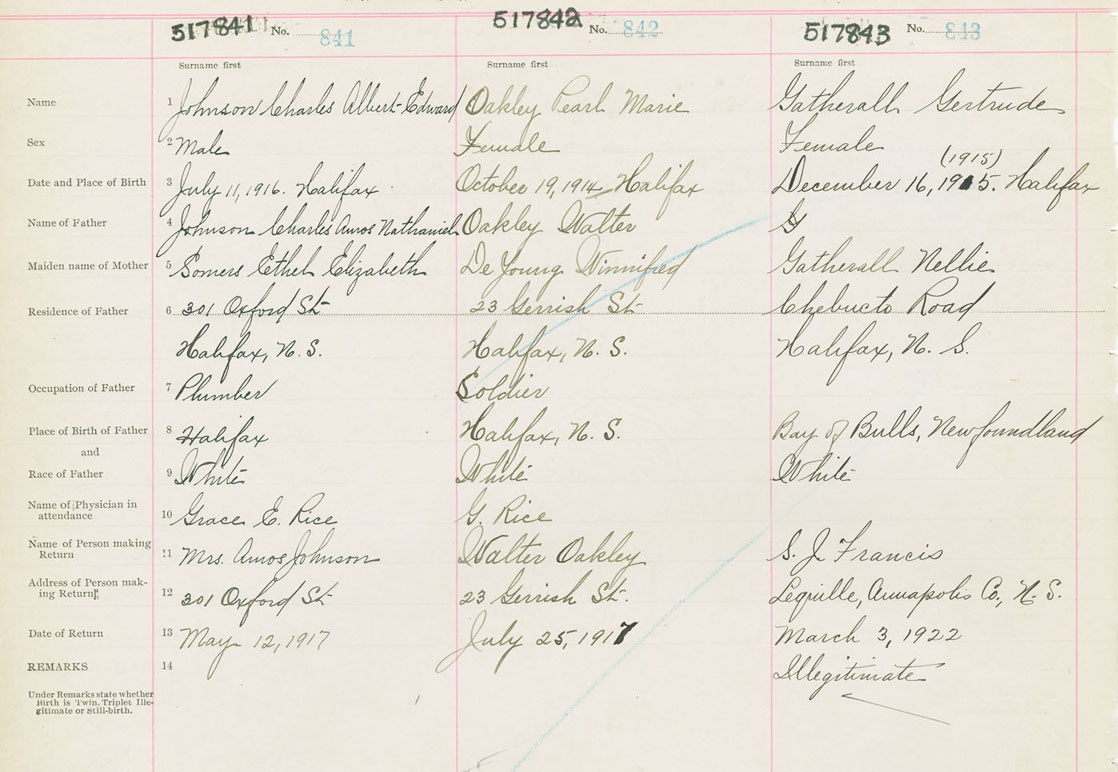 517841 No. 841 517842 No. 842 517843 No. 843
Surname first Surname first Surname first
Name 1 Johnson Charles Albert Edward Oakley Pearl Marie Gatherall Gertrude
Sex 2 Male Female Female
(1915)
Date and Place of Birth 3 July 11, 1916. Halifax October 19, 1914, Halifax December 16, 1915. Halifax
Name of Father 4 Johnson Charles Amos Nathaniel Oakley Walter G
Maiden name of Mother 5 Somers Ethel Elizabeth De Young Winnifred Gatherall Nellie
Residence of Father 6 301 Oxford St 23 Gerrish St Chebucto Road
Halifax, N. S. Halifax, N. S. Halifax, N. S.
Occupation of Father 7 Plumber Soldier
Place of Birth of Father 8 Halifax Halifax, N. S. Bay of Bulls, Newfoundland
and
Race of Father 9 White White White
Name of Physician in
attendance 10 Grace E. Rice G. Rice
Name of Person making
Return 11 Mrs. Amos Johnson Walter Oakley S. J. Francis
Address of Person mak-
ing Return 12 301 Oxford St 23 Gerrish St. Lequille, Annapolis Co., N. S.
Date of Return 13 May 12, 1917 July 25, 1917 March 3, 1922
REMARKS 14 Illegitimate
Under Remarks state whether
Birth is Twin, Triplet Ille-
gitimate or Still-birth.